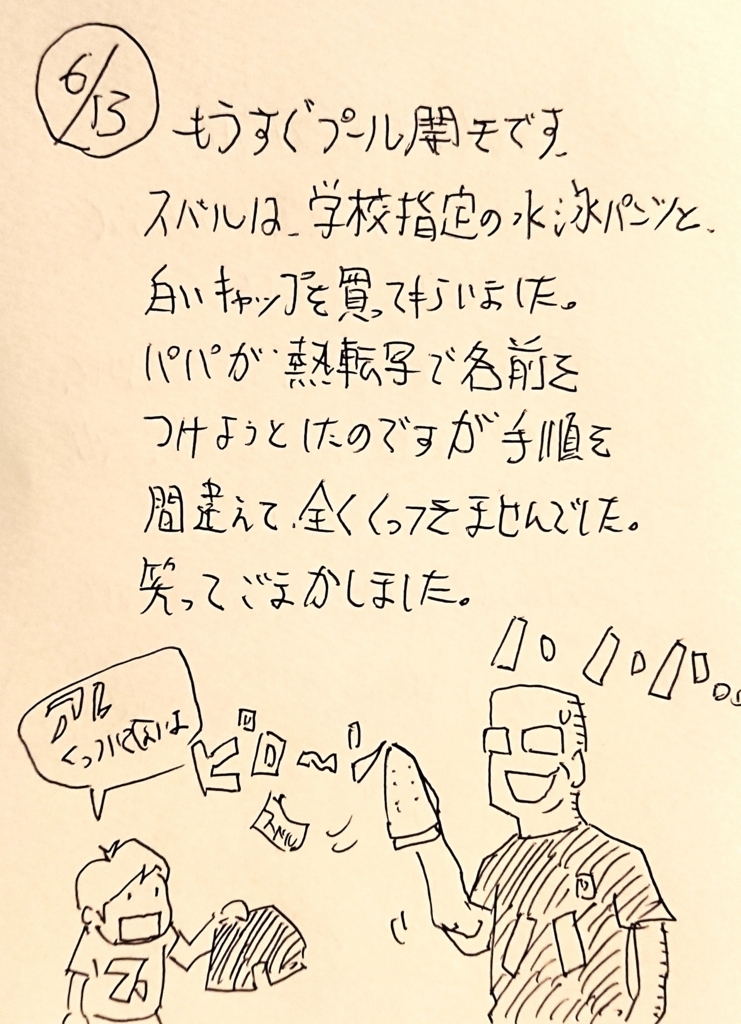 6/13
もうすぐプール開きです。
スバルは、学校指定の水泳パンツと、
白いキャップを買ってもらいました。
パパが熱転写で名前を
つけようとしたのですが手順を
間違えて、全くくっつきませんでした。
笑ってごまかしました。
ハハハ
くっついてないよ
ピローン
スバル
ス
パパ